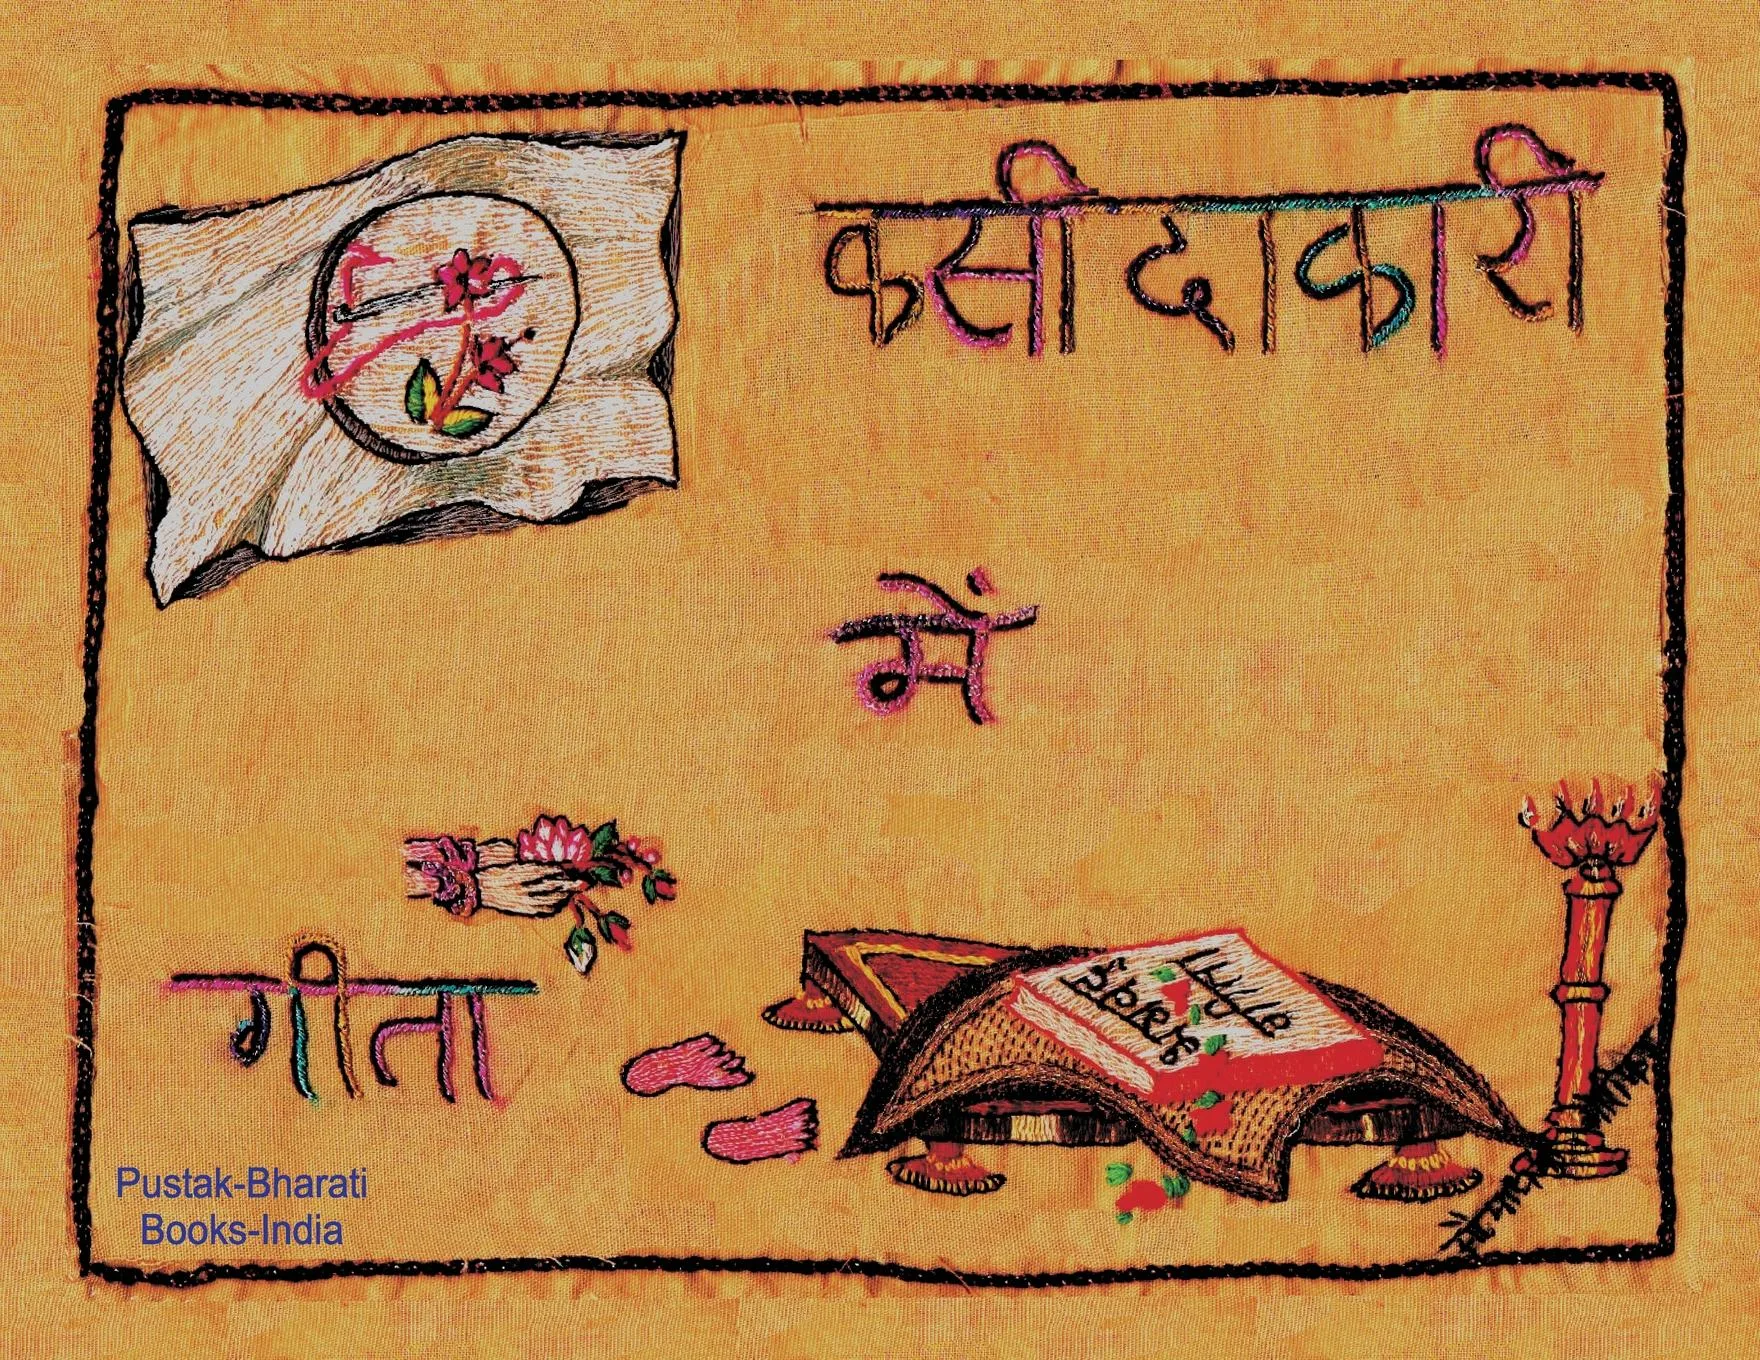 कसीदाकारी
में
गीता
Pustak-Bharati
Books-India